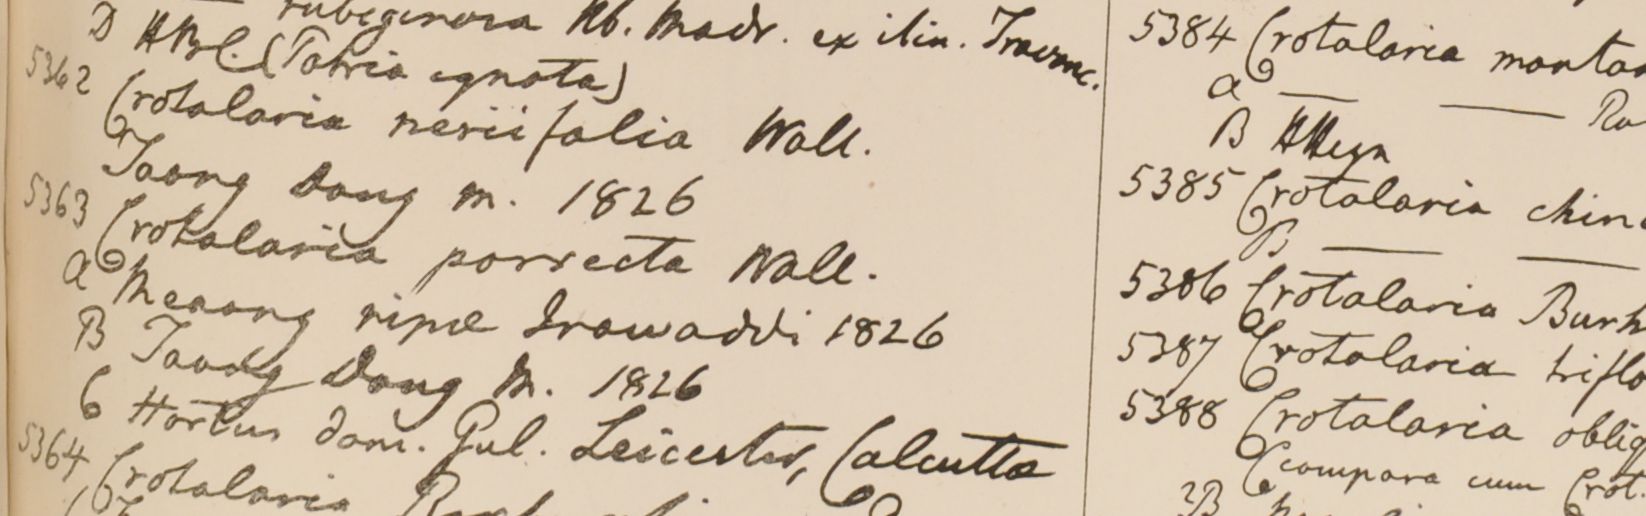 rubiginosa Hb. Madr. ex itin. Travanc.
D HBC. (Patria ignota)
5362 Crotalaria neriifolia Wall.
Taong Dong M. 1826
5363 Crotalaria porrecta Wall.
a Menang ripae Irawaddi 1826
B Taong Dong M. 1826
6 Hortus dom. Gul. Leicester, Calcutta
5364 Crotalaria
5384 Crotalaria montan
a — —
B HHeyn
5385 Crotalaria chin
B — —
5386 Crotalaria Burh
5387 Crotalaria triflo
5388 Crotalaria obliq
Compara cum Crot.
2B